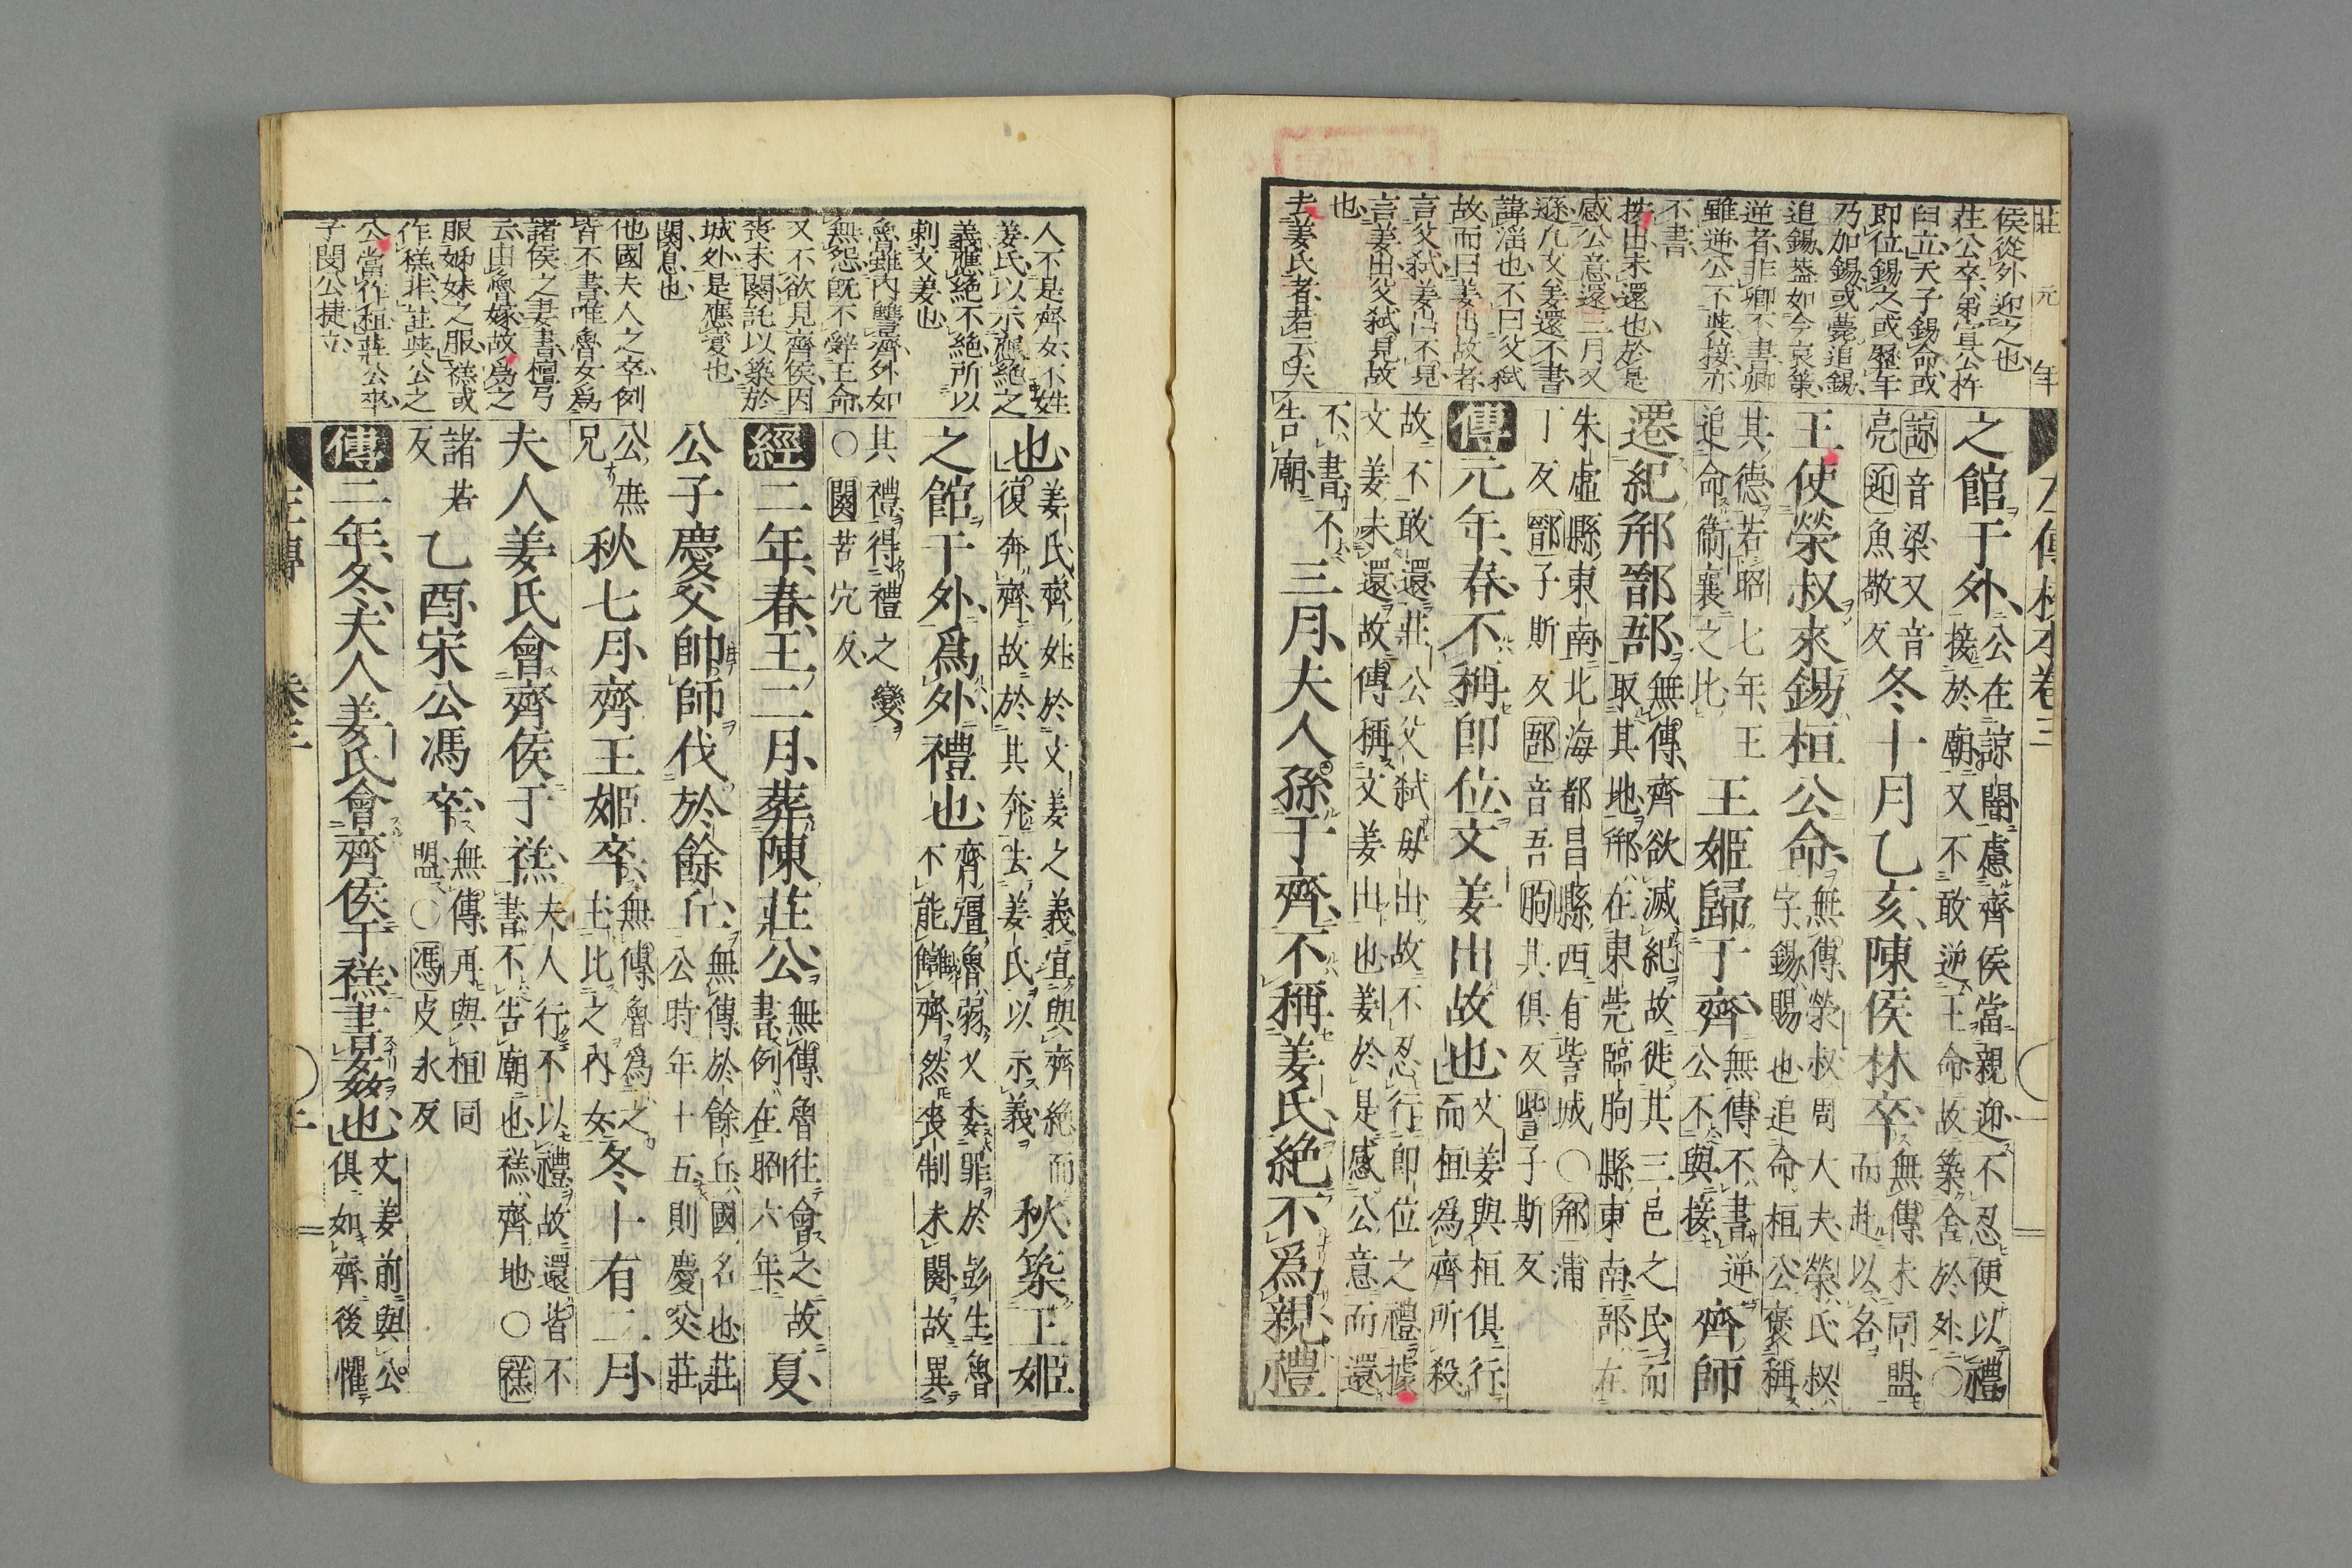 莊 元 年
侯從外迎之也
莊公卒弟宣公杵
臼立天子錫命或
即位錫之或歷年
乃加錫或薨追錫
追錫蓋如今哀策
逆者非卿不書卿
雖逆公不與接亦
不書
按出未還也於是
感公意還三月又
遜凡文姜還不書
諱淫也不曰父弑
故而曰姜出故者
言父弑姜出不見
言姜出父弑見故
也
去姜氏者若云夫
之館于外公在諒闇慮齊侯當親迎不忍便以禮
接於廟又不敢逆王命故築舍於外○
諒音梁又音
亮迎魚敬反冬十月乙亥陳侯林卒無傳未同盟
而赴以名
王使榮叔來錫桓公命無傳榮叔周大夫榮氏叔
字錫賜也追命桓公褒稱
其德若昭七年王
追命衞襄之比王姬歸于齊無傳不書逆
公不與接齊師
遷紀郱鄑郚無傳齊欲滅紀故徙其三邑之民而
取其地郱在東莞臨朐縣東南郚在
朱虛縣東南北海都昌縣西有訾城○郱蒲
丁反鄑子斯反郚音吾朐其俱反訾子斯反
傳元年春不稱即位文姜出故也文姜與桓俱行
而桓爲齊所殺
故不敢還莊公父弑母出故不忍行即位之禮據
文姜未還故傳稱文姜出也姜於是感公意而還
不書不
告廟三月夫人孫于齊不稱姜氏絶不爲親禮
人不是齊女不姓
姜氏以示絕之
義應絕不絕所以
刺文姜也
魯雖內讐齊外如
無怨既不辭王命
又不欲見齊侯因
喪未闋託以築於
城外是應變也
闋息也
他國夫人之卒例
皆不書唯魯女爲
諸侯之妻書檀弓
云由魯嫁故爲之
服姊妹之服禚或
作糕非註莊公之
公當作桓莊公卒
子閔公捷立
也姜氏齊姓於文姜之義宜與齊絶而
復奔齊故於其奔去姜氏以示義秋築王姬
之館于外爲外禮也齊彊魯弱又委罪於彭生魯
不能讎齊然喪制未闋故異
其禮得禮之變
○闋苦穴反
經二年春王二月葬陳莊公無傳魯往會之故
書例在昭六年夏
公子慶父帥師伐於餘丘無傳於餘丘國名也莊
公時年十五則慶父莊
公庶
兄秋七月齊王姬卒無傳魯爲之
主比之內女冬十有二月
夫人姜氏會齊侯于禚夫人行不以禮故還皆不
書不告廟也禚齊地○禚
諸若
反乙酉宋公馮卒無傳再與桓同
盟○馮皮永反
傳二年冬夫人姜氏會齊侯于禚書姦也文姜前與公
俱如齊後懼